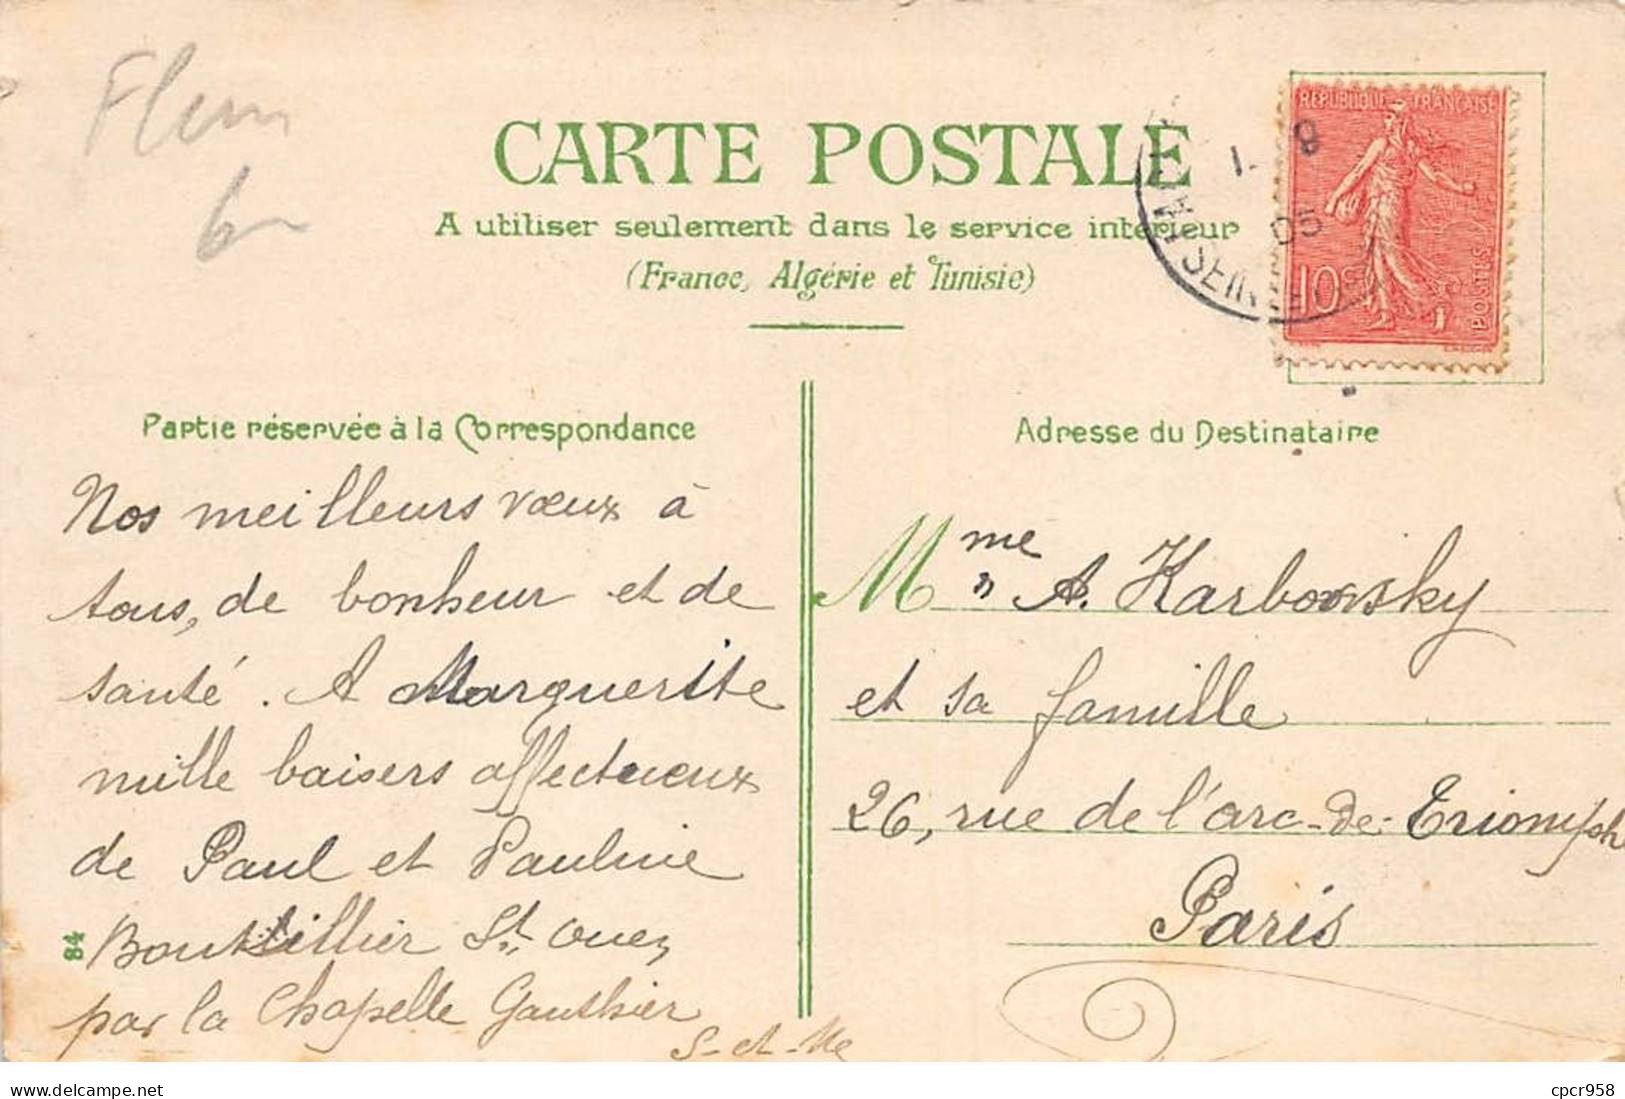 Fleur
6-
CARTE POSTALE
A utiliser seulement dans le service intérieur
(France, Algérie et Tunisie)
REPUBLIQUE FRANÇAISE
10c
POSTES
1- 9
05
SEINE
Partie réservée à la Correspondance
Nos meilleurs vœux à
tous, de bonheur et de
santé. A Marguerite
mille baisers affectueux
de Paul et Pauline
84 Boutillier St. Ouen
par la Chapelle Gauthier
S-et-Me
Adresse du Destinataire
Mme " A. Karbowsky
et sa famille
26, rue de l'arc-de-Triomph
Paris
Delcampe.net
cpcr958